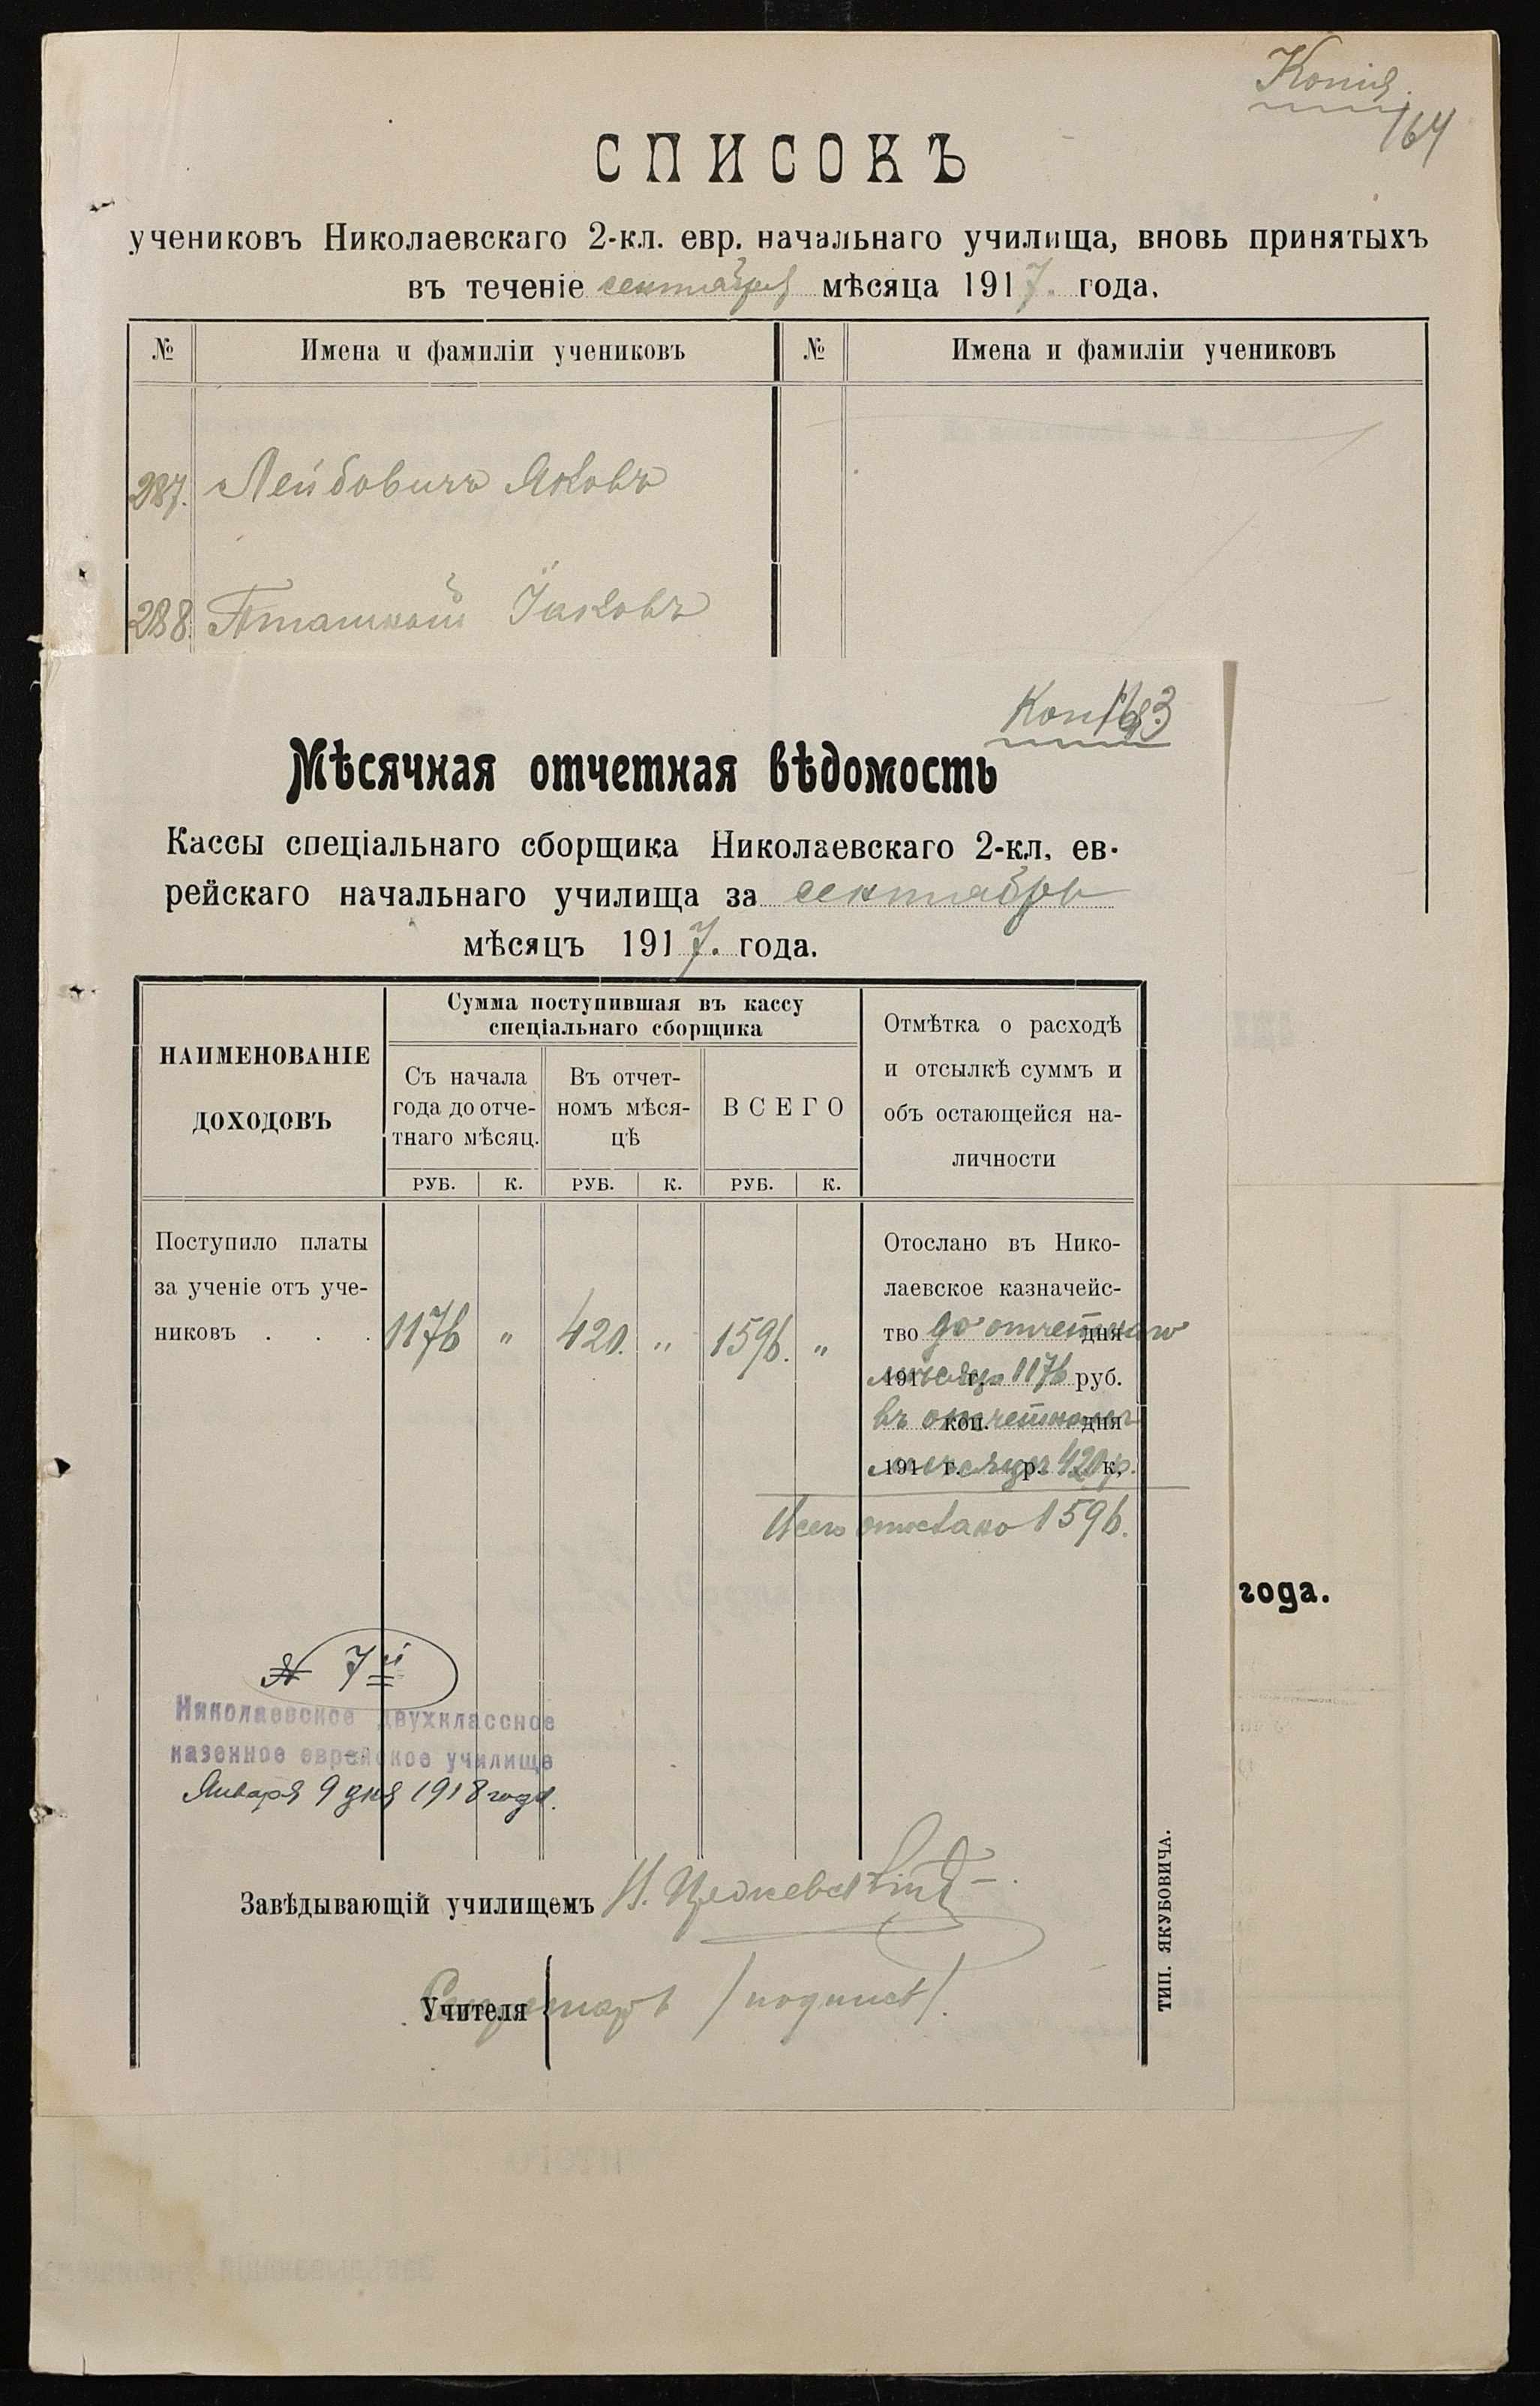 Копія.
164
СПИСОКЪ
учениковъ Николаевскаго 2-кл. евр. начальнаго училища, вновь принятыхъ
въ теченіе сентября мѣсяца 1917. года.
№ Имена и фамиліи учениковъ № Имена и фамиліи учениковъ
287. Лейбовичъ Яковъ
288. Пташный Іаковъ
Копія
163
Мѣсячная отчетная вѣдомость
Кассы спеціальнаго сборщика Николаевскаго 2-кл. ев-
рейскаго начальнаго училища за сентябрь
мѣсяцъ 1917. года.
НАИМЕНОВАНІЕ
ДОХОДОВЪ
Сумма поступившая въ кассу
спеціальнаго сборщика
Съ начала
года до отче-
тнаго мѣсяц.
Въ отчет-
номъ мѣся-
цѣ
ВСЕГО
Отмѣтка о расходѣ
и отсылкѣ суммъ и
объ остающейся на-
личности
РУБ. К. РУБ. К. РУБ. К.
Поступило платы
за ученіе отъ уче-
никовъ . . .
1176 " 420. " 1596. "
Отослано въ Нико-
лаевское казначейс-
тво до отчетнаго дня
191 г. мѣсяца 1176 руб.
въ отчетномъ коп. дня
191 г. мѣсяцѣ р. 420 р. к,
Всего отослано 1596.
№ 7й
Николаевское двухклассное
казенное еврейское училище
Января 9 дня 1918 года.
Завѣдывающій училищемъ
Учителя
Секретарь /подпись/.
ТИП. ЯКУБОВИЧА.
года.